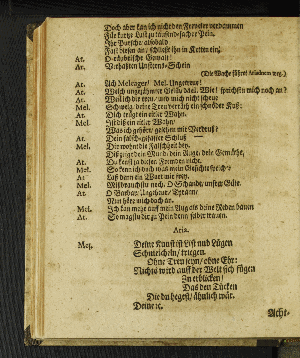 Doch aber kan ich nicht den Frevler verdammen
Für kurtze Lust zu tausendfacher Pein.
Ihr Pursche alsobald
Fast diesen an / schliesst ihn in Ketten ein.
At. O teuflische Gewalt!
Ar. Verhaßten Unsterns-Schein
(Die Wache führet Ariadnem weg.)
At. Ach Meleager! Mel. Ungetreue!
At. Welch ungezähmter Wille Mel. Wie! sprichst du mich noch an?
At. Weil ich die treu / und mich nicht scheue
Mel. Schweig, deine Treu verräth ein schnöder Kuß:
At. Dich trügt ein eitler Wahn.
Mel. Ist diß ein eitler Wahn /
Was ich gehört / gesehen mit Verdruß?
At. Dein falsch-gefaster Schluß
Mel. Dir wohnt die Falschheit bey.
Diß zeiget dein Mund, dein Auge, dein Gemüthe,
At. Du kennst ja dieser Fremden nicht.
Mel. So kenn ich doch was mein Gesichte spricht
At. Laß dann ein Wort mir frey.
Mel. Mißbrauchstu noch, O Schande, unsre Güte.
At. O Barbar, Ungeheur, Tyranne,
Nun höre mich doch an.
Mel. Ich kan mehr auf mein Aug als deine Reden bauen
At. So magstu der Pein denn selber trauen.
Aria.
Mel. Deine Kunst ist List und Lügen
Schmeicheln / triegen.
Ohne Treu seyn / ohne Ehr:
Nichts wird auff der Welt sich fügen
Zu erblicken /
Das den Tücken
Die du hegest / ähnlich wär.
Deine ꝛc.
Acht-